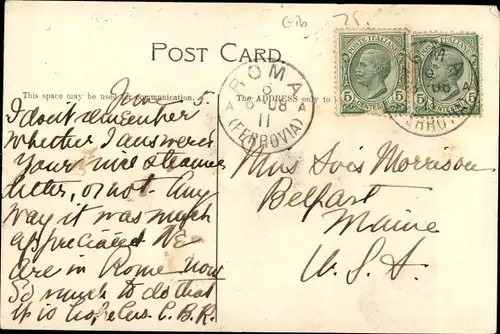 Gib 75.
POST CARD.
POSTE ITALIANE
POSTE ITALIANE
5 CENTESIMI 5
5 CENTESIMI 5
ROMA
6
08
11
(FERROVIA)
A A
This space may be used for communication.
The ADDRESS only to
5.
I don't remember
whether I answered
your nice steamer
letter, or not. Any
way it was much
appreciated We
are in Rome now
So much to do that
it is hopeless. C.B.R.
Miss Lois Morrison
Belfast
Maine
U.S.A.